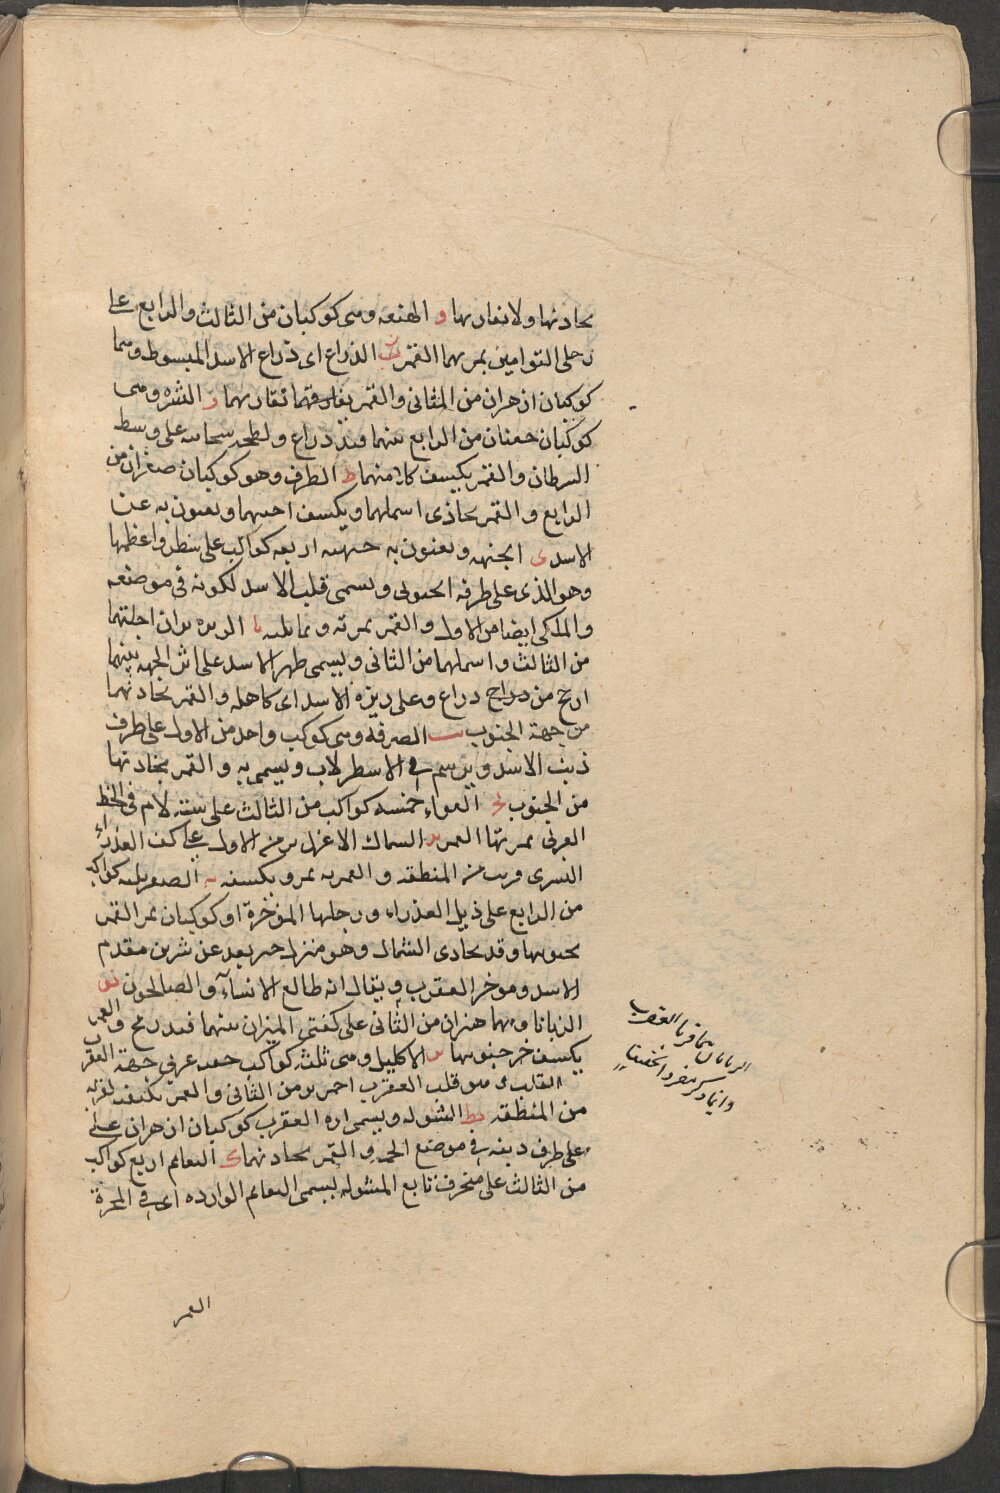 يحاذيها ولا يقاربها و الهنعه وهى كوكبان من الثالث والرابع على
رجلى التوامين يمر بهما القمر ز الذراع اى ذراع الاسد المبسوط وهما
كوكبان ازهران من الثانى والقمر يفارقهما يقاربهما ح النثره وهى
كوكبان خفيان من الرابع بينهما قدر ذراع ولطخه سحابيه على وسط
السرطان والقمر يكسف كلا منهما ط الطرف وهو كوكبان صغيران من
الرابع والقمر يحاذى اسملهما ويكسف احدهما ويعنون به عين
الاسد ى الجبهه ويعنون به جبهته اربعه كواكب على سطر واعظمها
وهو الذى على طرفه الجنوبى ويسمى قلب الاسد لكونه فى موضعه
والملكى ايضا من الاول والقمر يمر به وبما يليه يا الزبره نيران اجلهما
من الثالث واسملهما من الثانى ويسمى ظهر الاسد على اثر الجبهه بينهما
ارجح من ذراع وعلى زبرة الاسد اى كاهله والقمر يحاذيهما
من جهة الجنوب يب الصرفه وهى كوكب واحد من الاول على طرف
ذنب الاسد ويرسم فى الاسطرلاب ويسمى به والقمر يحاذيها
من الجنوب يج العواء خمسه كواكب من الثالث على هيئة لام فى الخط
العربى يمر بها القمر يد السماك الاعزل نير من الاول على كف العذراء
اليسرى قريب من المنطقه والقمر به يمر ويكسفه يه الغفر ثلثه كواكب
من الرابع على ذيل العذراء ورجلها المؤخرة او كوكبان يمر القمر
بجنوبها وقد يحاذى الشمال وهو منزل خير بعد عن شرين مقدم
الاسد وموخر العقرب ويقال انه طالع الانبياء والصالحون يو
الزبانا وهما نيران من الثانى على كفتى الميزان بينهما قدر رمح والقمر
يكسف جنوبيها يز الاكليل وهى ثلثه كواكب جبهة العقرب
القلب هو قلب العقرب احمر نير من الثانى والقمر يكسفه لقربه
من المنطقه يط الشوله ويسمى ابره العقرب كوكبان ازهران على
على طرف ذنبه فى موضع الحمه والقمر يحاذيهما ك النعايم اربع كواكب
من الثالث على منحرف تابع الشوله يسمى النعايم الوارده اى فى المجرة
القمر
الزبانان هما قرنا العقرب
وانما